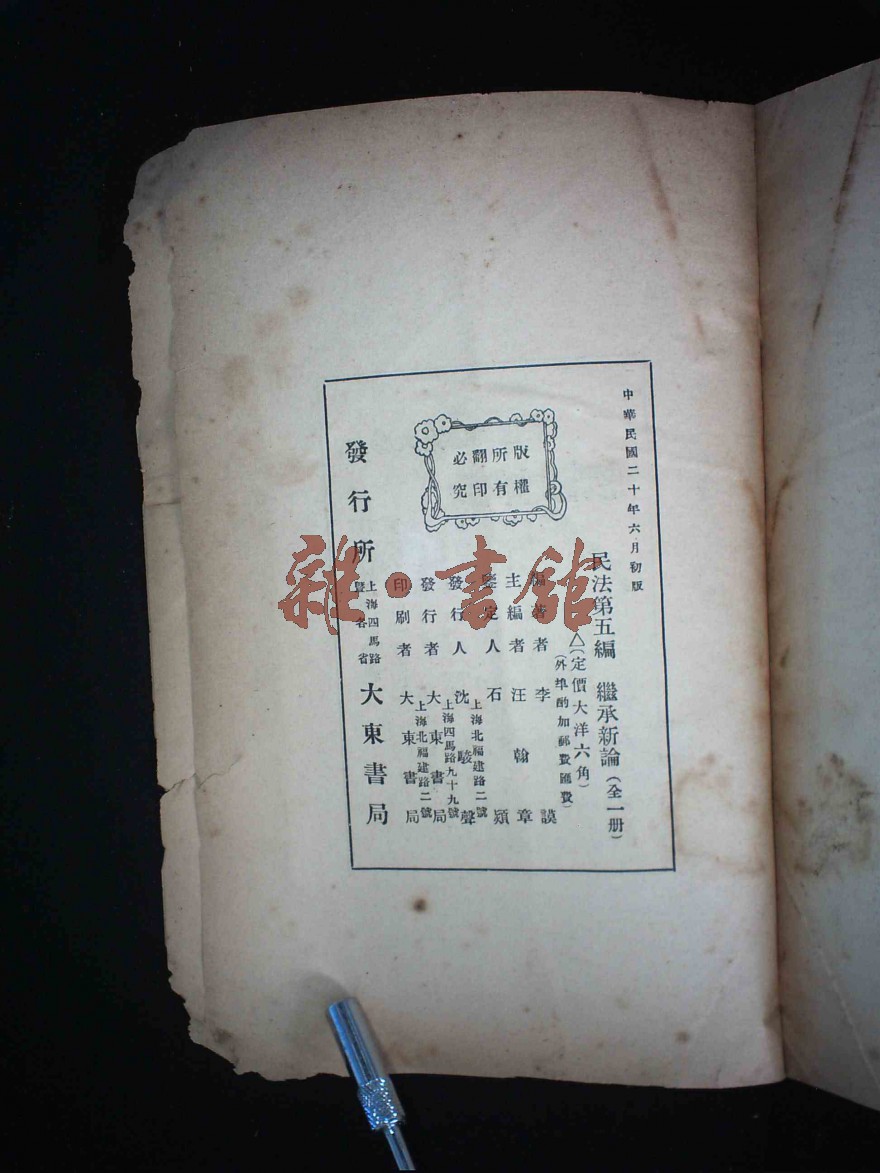 中華民國二十年六月初版
民法第五編 繼承新論（全一册）
△（定價大洋六角）
（外埠酌加郵費匯費）
編著者 李謨
主編者 汪翰章
鑒定人 石潁
上海北福建路二號
發行人 沈駿聲
上海四馬路九十九號
發行者 大東書局
上海北福建路二號
印刷者 大東書局
版權
所有
翻印
必究
發行所 上海四馬路暨各省 大東書局
雜·書館